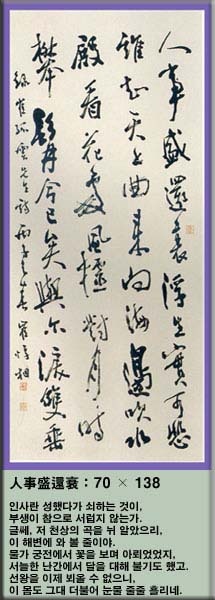 人事盛還衰浮生實可悲
誰知天上曲來向海邊吹水
殿看花處風欞對月時
攀髥今已矣與爾淚雙垂
錄崔孤雲先生詩
人事盛還衰 : 70 × 138
인사란 성했다가 쇠하는 것이,
부생이 참으로 서럽지 않는가.
글쎄, 저 천상의 곡을 뉘 알았으리,
이 해변에 와 불 줄이야.
물가 궁전에서 꽃을 보며 아뢰었었지,
서늘한 난간에서 달을 대해 불기도 했고.
선왕을 이제 뵈올 수 없으니,
이 몸도 그대 더불어 눈물 줄줄 흘리네.